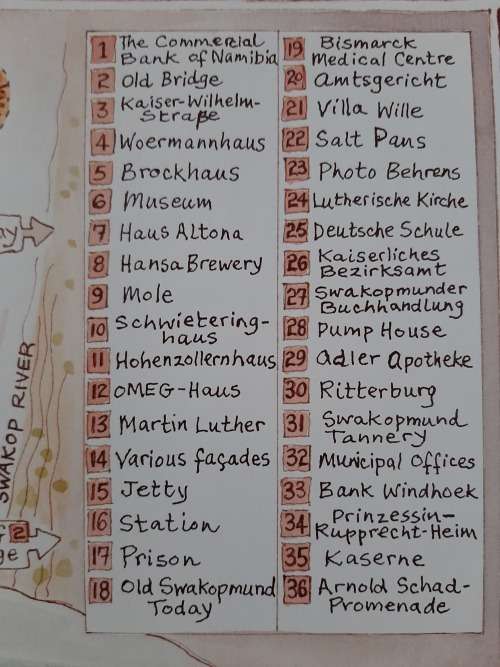 1 The Commercial
Bank of Namibia
2 Old Bridge
3 Kaiser-Wilhelm-
Straße
4 Woermannhaus
5 Brockhaus
6 Museum
7 Haus Altona
8 Hansa Brewery
9 Mole
10 Schwietering-
haus
11 Hohenzollernhaus
12 OMEG-Haus
13 Martin Luther
14 Various façades
15 Jetty
16 Station
17 Prison
18 Old Swakopmund
Today
19 Bismarck
Medical Centre
20 Amtsgericht
21 Villa Wille
22 Salt Pans
23 Photo Behrens
24 Lutherische Kirche
25 Deutsche Schule
26 Kaiserliches
Bezirksamt
27 Swakopmunder
Buchhandlung
28 Pump House
29 Adler Apotheke
30 Ritterburg
31 Swakopmund
Tannery
32 Municipal Offices
33 Bank Windhoek
34 Prinzessin-
Rupprecht-Heim
35 Kaserne
36 Arnold Schad-
Promenade
SWAKOP RIVER
2